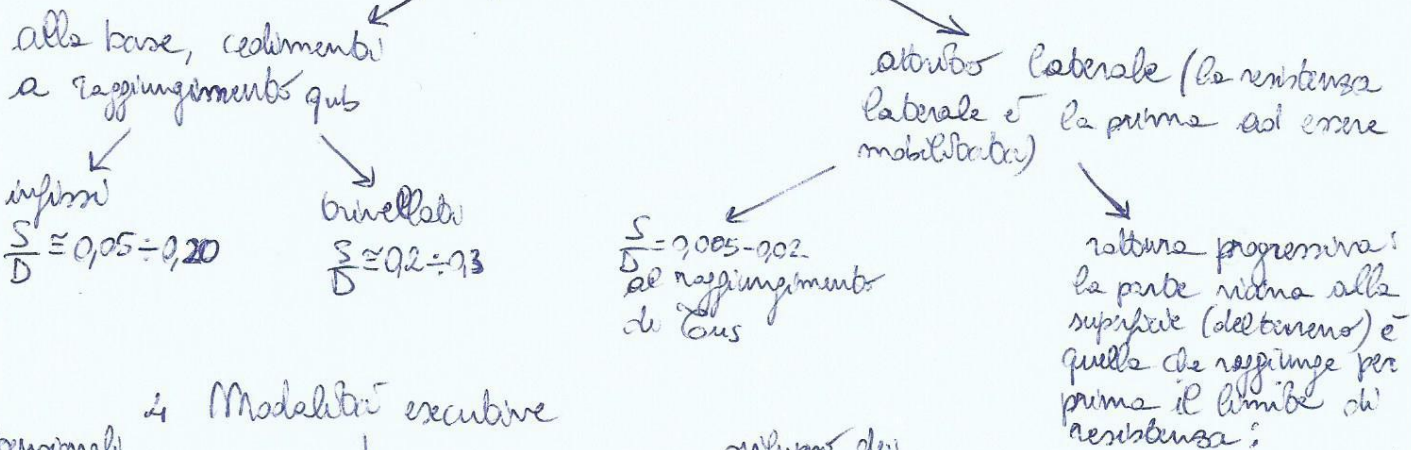 alla base, cedimenti
a raggiungimento qub
infissi
S/D ≅ 0,05 ÷ 0,20
trivellati
S/D ≅ 0,2 ÷ 0,3
attrito laterale (la resistenza
laterale è la prima ad essere
mobilitata)
S/D = 0,005 - 0,02
al raggiungimento
di τus
rottura progressiva:
la parte vicina alla
superficie (del terreno) è
quella che raggiunge per
prima il limite di
resistenza:
4 Modalità esecutive
sviluppo dei